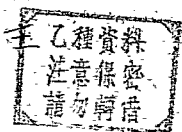 乙種資料
注意保密
請勿轉借